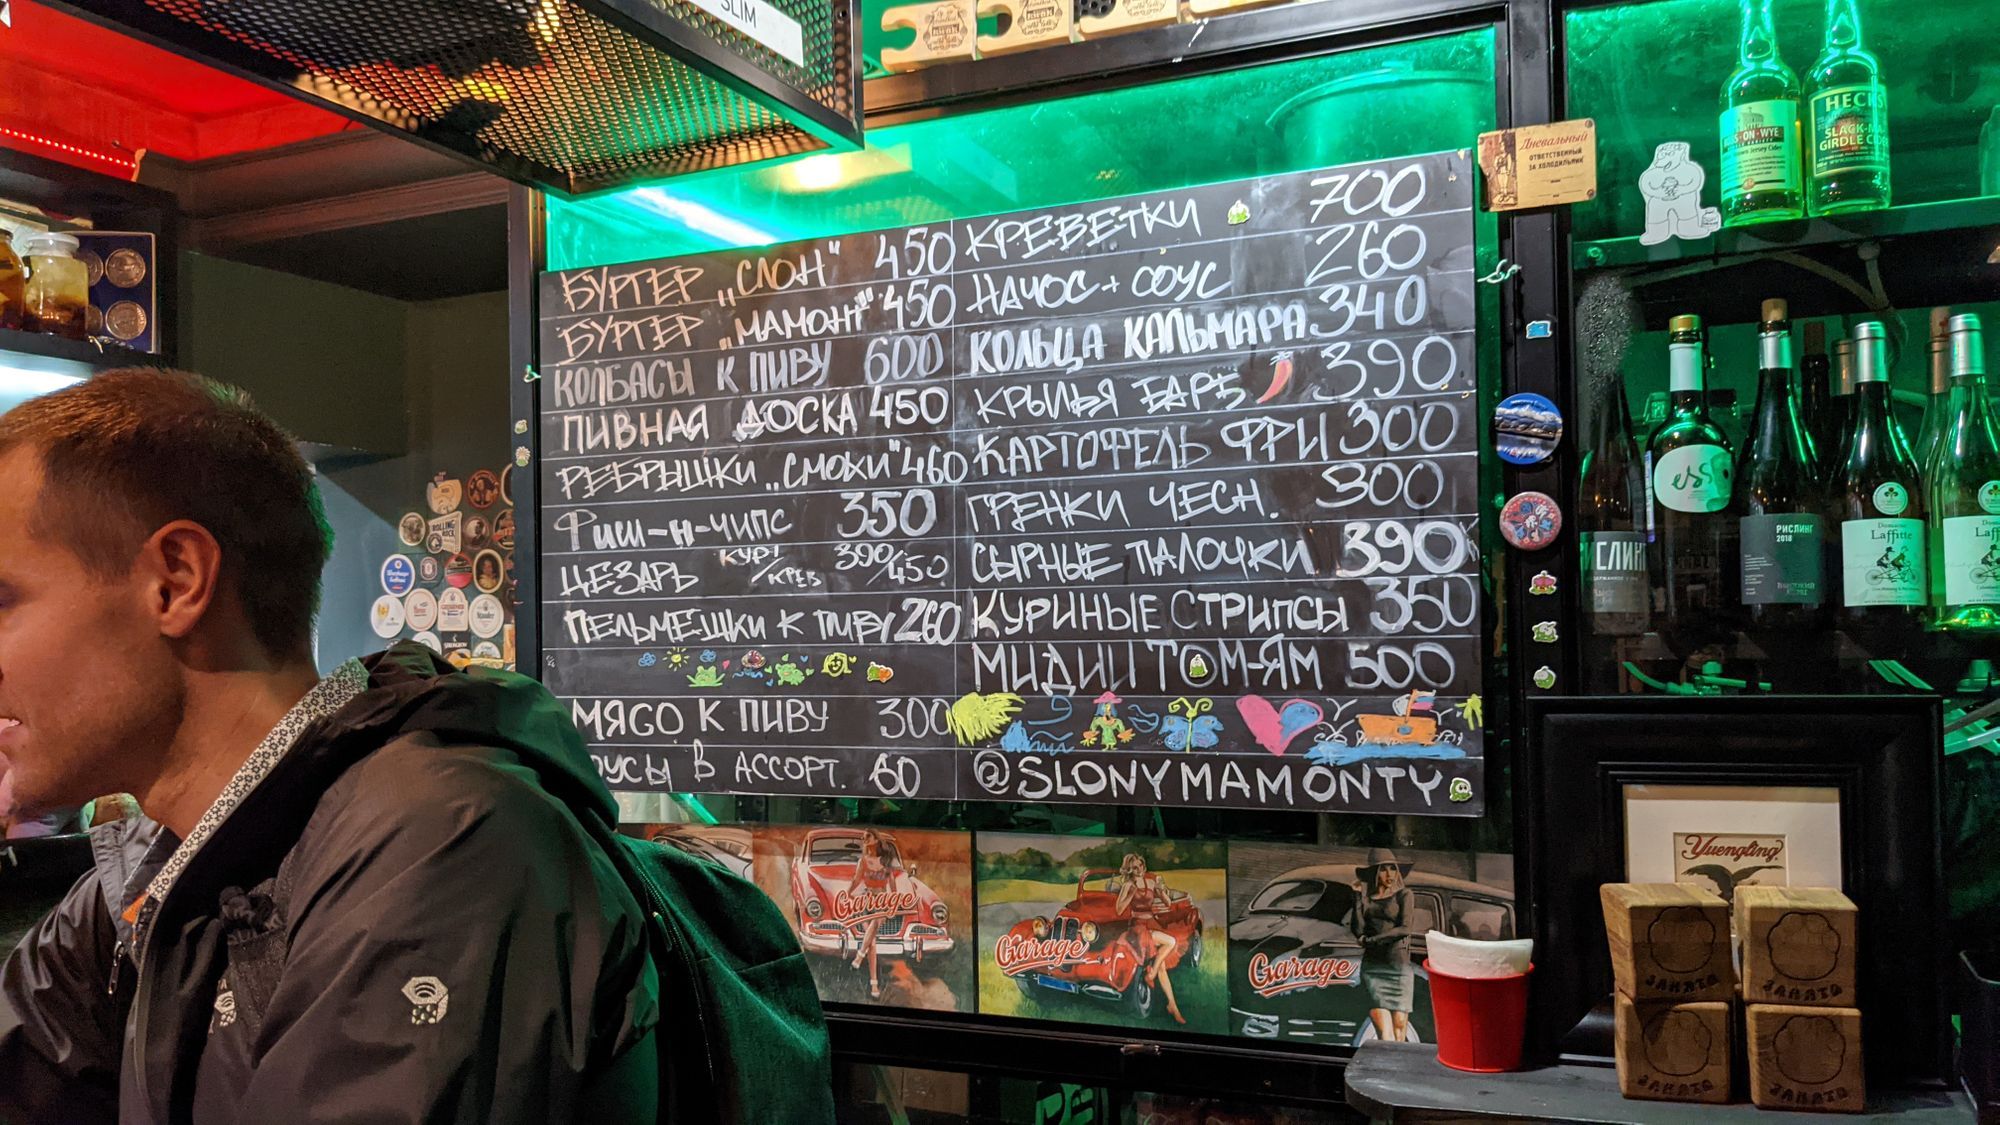 SLIM
БУРГЕР „СЛОН" 450
БУРГЕР „МАМОНТ" 450
КОЛБАСЫ К ПИВУ 600
ПИВНАЯ ДОСКА 450
РЕБРЫШКИ „СМОКИ" 460
Фиш-н-чипс 350
ЦЕЗАРЬ КУР/КРЕВ 390/450
ПЕЛЬМЕШКИ К ПИВУ 260
МЯСО К ПИВУ 300
СОУСЫ В АССОРТ. 60
КРЕВЕТКИ 700
НАЧОС + СОУС 260
КОЛЬЦА КАЛЬМАРА 340
КРЫЛЬЯ БАРБ 390
КАРТОФЕЛЬ ФРИ 300
ГРЕНКИ ЧЕСН. 300
СЫРНЫЕ ПАЛОЧКИ 390
КУРИНЫЕ СТРИПСЫ 350
МИДИИ ТОМ-ЯМ 500
@SLONYMAMONTY
Дневальный
ОТВЕТСТВЕННЫЙ
ЗА ХОЛОДИЛЬНИК
ON-WYE
HECK'S
GIRDLE CIDER
ess
РИСЛИНГ
2018
РИСЛИНГ
Domaine
Laffitte
Garage
Garage
Garage
Yuengling
ЗАНЯТО
ЗАНЯТО
ЗАНЯТО
ЗАНЯТО